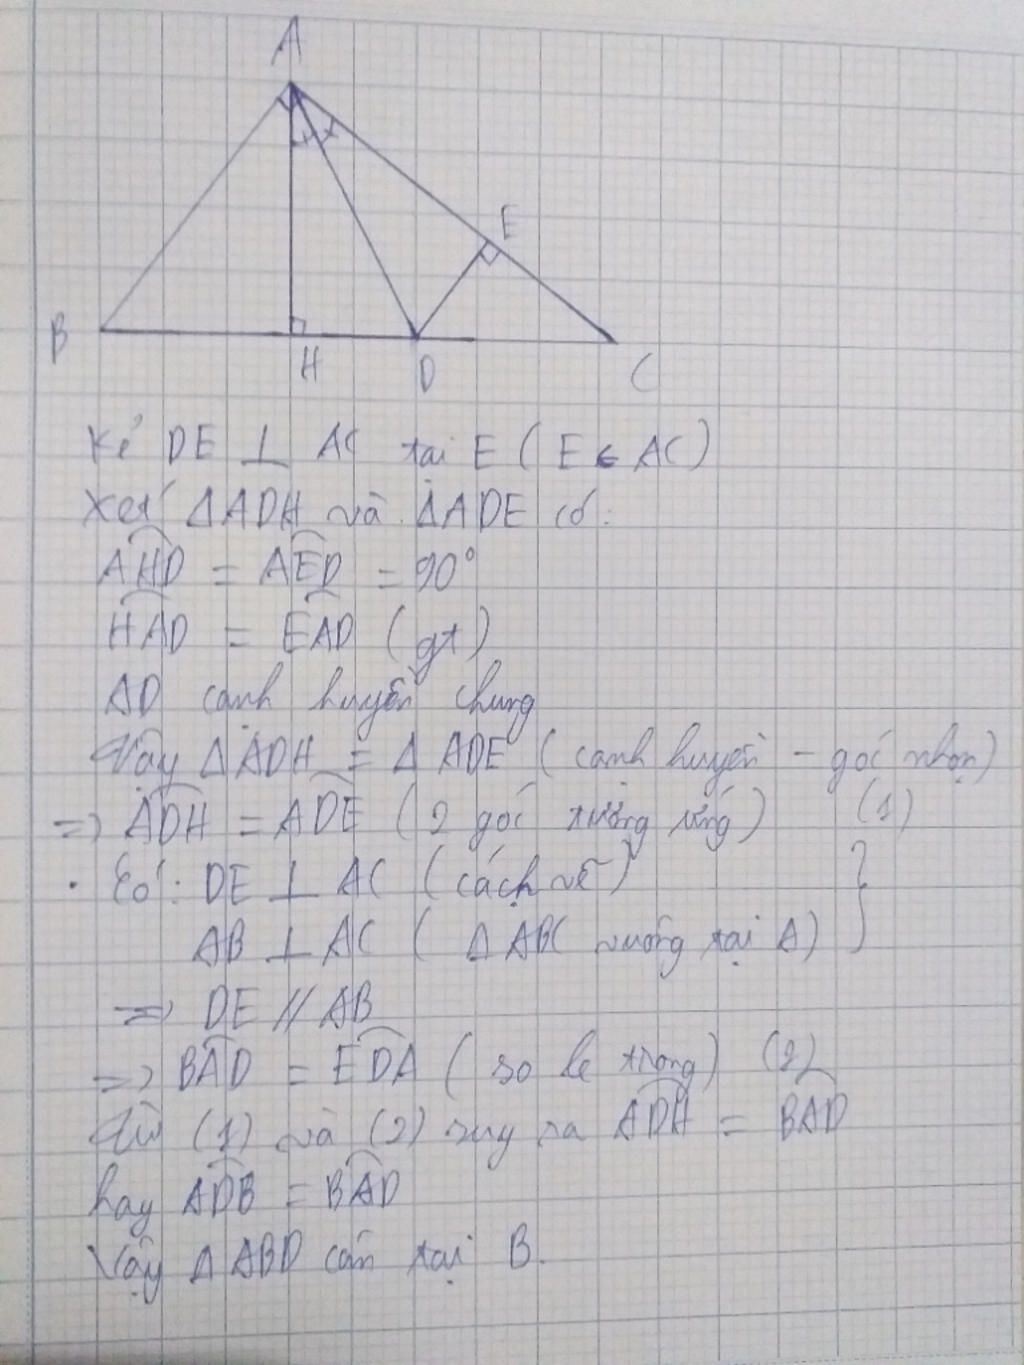 A
E
B
H
D
C
Kẻ DE ⊥ AC tại E ( E ∈ AC )
Xét ΔADH và ΔADE có:
AHD = AED = 90°
HAD = EAD (gt)
AD cạnh huyền chung
Vậy ΔADH = ΔADE ( cạnh huyền - góc nhọn)
=> ADH = ADE ( 2 góc tương ứng ) (1)
. Có: DE ⊥ AC ( cách vẽ ) }
AB ⊥ AC ( ΔABC vuông tại A )
=> DE // AB
=> BAD = EDA ( so le trong ) (2)
Từ (1) và (2) suy ra ADH = BAD
hay ADB = BAD
Vậy ΔABD cân tại B.